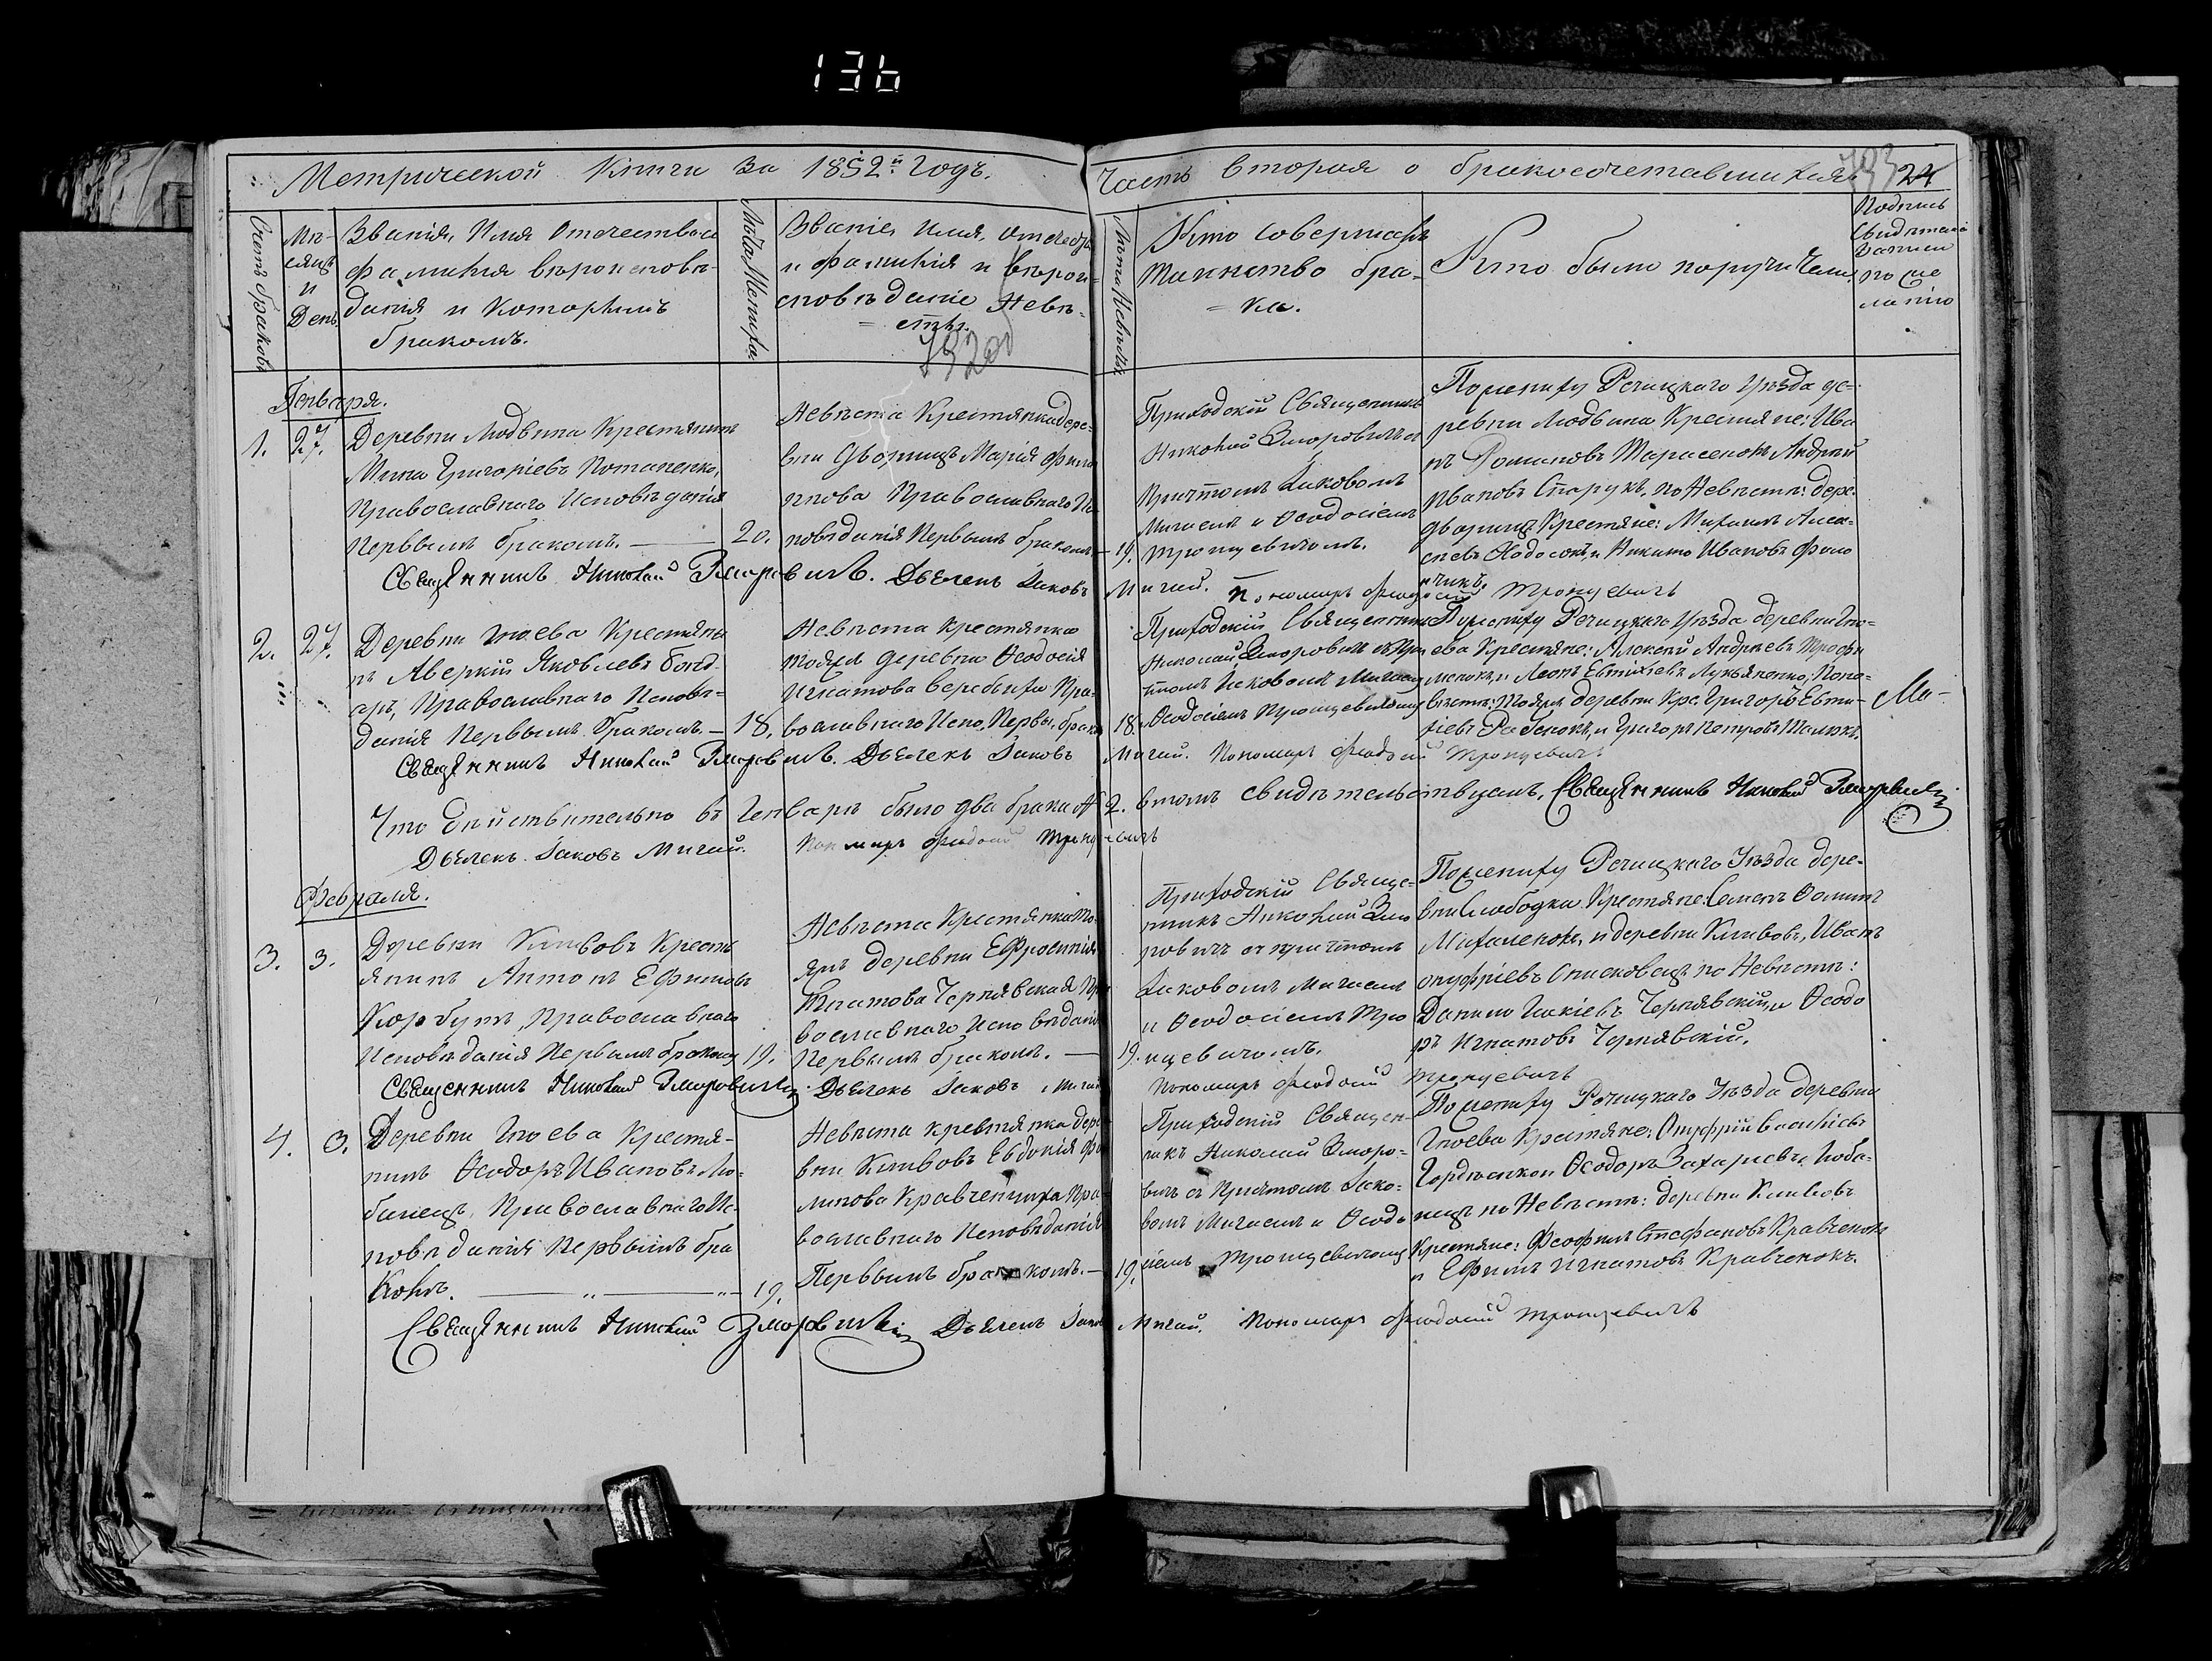 136
Метрической Книги за 1852й Годъ.
Часть вторая о бракосочетавшихся
24
Счетъ браковъ
Мѣ-
сяцъ
и
День
Званія, Имя Отечество и
Фамилія вѣроисповѣ-
данія и Которымъ
бракомъ.
Лѣта Жениха
Званіе, имя, отечество
и фамилія и вѣрои-
сповѣданіе Невѣ-
= сты.
Лѣта Невѣсты
Кто совершалъ
таинство бра-
= ка.
Кто были поручители
Подпись
Свидѣтелей
записи
по же
ланію
Генваря.
1. 27.
Деревни Людвина Крестянинъ
Мина Григоріевъ Потапенко,
Православнаго Исповѣданія
Первымъ бракомъ. — 20.
Невѣста Крестянка дере-
вни Дворищъ Марія Фили
пова Православнаго Ис
повѣданія Первымъ бракомъ — 19.
Приходскій Священникъ
Николай Зморовичъ съ
Причтомъ Іаковомъ
Мигаемъ и Ѳеодосіемъ
Тройцевичомъ.
По жениху Речицкаго Уѣзда де-
ревни Людвина Крестяне: Ива
нъ Романовъ Тарасенокъ Андрей
Ивановъ Старукъ, по Невѣстѣ: дере.
дворищъ Крестяне: Михаилъ Алек-
сѣевъ Ходосокъ, и Никита Ивановъ Фило
нчикъ.
Священникъ Николай Зморовичъ. Дьячекъ Іаковъ Мигай. Пономарь Феодосій Тройцевичъ
2. 27.
Деревни Гноева Крестяни
нъ Аверкій Яковлевъ Бонд-
арь, Православнаго Исповѣ-
данія Первымъ бракомъ. — 18.
Невѣста крестянка
тояжа деревни Ѳеодосія
Игнатова Веребьиха Пра-
вославнаго Испо. Первы. брако 18.
Приходскій Священникъ
Николай Зморовичъ съ При
чтомъ Іаковомъ Мигаемъ
Ѳеодосіемъ Тройцевичомъ
По жениху Речицкаго Уѣзда деревни Гно-
ева Крестяне: Алексей Андреевъ Трофи
менокъ, и Леонъ Евтихіевъ Лукьяненко, По не-
вѣстѣ: Тояжъ деревни Кре. Григоръ Евти-
хіевъ Рабенокъ, и Григоръ Петровъ Малюкъ.
Священникъ Николай Зморовичъ. Дьячекъ Іаковъ Мигай. Пономарь Феодосій Тройцевичъ
Что дѣйствительно въ Генварѣ было два брака № 2. въ томъ свидѣтельствуемъ, Священникъ Николай Зморовичъ
Дьячекъ Іаковъ Мигай. Пономарь Феодосій Тройцевичъ
Февраля.
3. 3.
Деревни Кливовъ Кресть
янинъ Антонъ Ефимовъ
Корбутъ, Православнаго
Исповѣданія Первымъ бракомъ 19.
Невѣста Крестянка То-
яжъ деревни Ефросинія
Игнатова Чернявская Пра
вославнаго Исповѣданія
Первымъ бракомъ. — 19.
Приходскій Свяще-
нникъ Николай Змо
ровичъ съ причтомъ
Іаковомъ Мигаемъ
и Ѳеодосіемъ Тро
йцевичомъ.
По жениху Речицкаго Уѣзда дере-
вни Слободки Крестяне: Семенъ Ѳоминъ
Михаленокъ, и деревни Кливовъ, Иванъ
Онуфріевъ Списковецъ по Невѣстѣ:
Данило Іакіевъ Чернявскій, и Ѳеодо
ръ Игнатовъ Чернявскій.
Священникъ Николай Зморовичъ. Дьячекъ Іаковъ Мигай Пономарь Феодосій Тройцевичъ
4. 3.
Деревни Гноева Крестя-
нинъ Ѳеодоръ Ивановъ Лю-
банецъ, Православнаго Ис-
повѣданія Первымъ бра
комъ. — „ — „ — 19.
Невѣста крестянка дере
вни Кливовъ Евдокія Фи
липова Кравченчиха Пра-
вославнаго Исповѣданія
Первымъ бракомъ. — 19.
Приходскій Священ-
никъ Николай Зморо-
вичъ съ Причтомъ Іако-
вомъ Мигаемъ и Ѳеодо
сіемъ Тройцевичомъ
По жениху Речицкаго Уѣзда деревни
Гноева Крестяне: Онуфрій Василіевъ
Гордѣенкои Ѳеодоръ Захаріевъ Люба-
нецъ по Невѣстѣ: деревни Кливовъ
Крестяне: Феофилъ Стефановъ Кравченокъ
и Ефимъ Игнатовъ Кравченокъ.
Священникъ Николай Зморовичъ Дьячекъ Іаковъ Мигай. Пономарь Феодосій Тройцевичъ